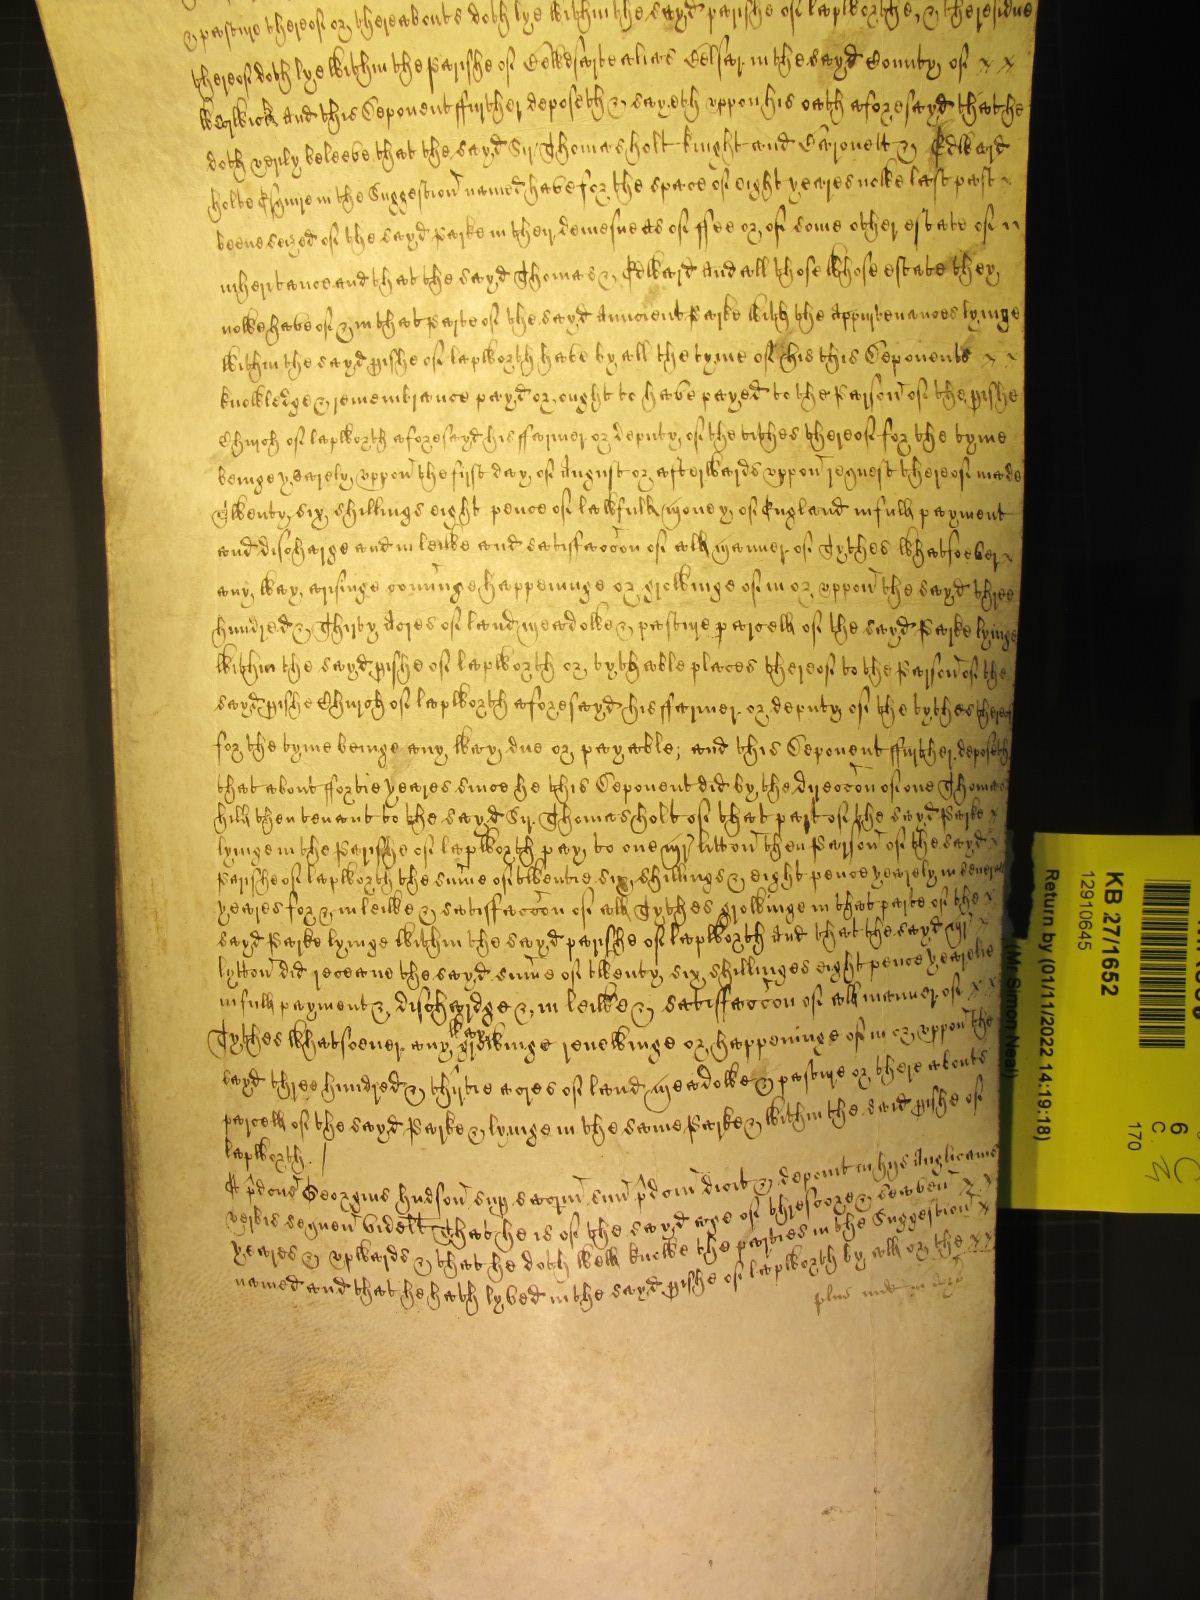 & pasture thereof or thereabouts doth lye within the sayd parishe of lapworthe, & the residue
thereof doth lye within the Parishe of Rowdsarte alias in the sayd County of x x
Warwick And this Deponent ffurther deposeth & sayeth uppon his oath aforesayd that he
doth veryly beleeve that the sayd Sr Thomas holt knight and Baronett & Edward
holte Esquire in the Suggestion named have for the space of eight yeares nowe last past x
beene seized of the sayd Parke in their demesne as of ffee or of some other estate of
inheritance and that the sayd Thomas & Edward And all those whose estate they
nowe have of & in that Parte of the sayd Auncient Parke with the Appurtenances lyinge
within the sayd pishe of lapworth have by all the tyme of his this Deponents x x
knowledge & remembrance payd or ought to have payed to the Parson of the pishe
Church of lapworth aforesayd his ffarmer or deputy of the tithes thereof for the tyme
beinge yearely uppon the first day of August or afterwards uppon request thereof made
Twenty six shillings eight pence of lawfull money of England in full payment
and discharge and in leiwe and satisfaccon of all manner of Tythes whatsoever x
any way arisinge cominge happeninge or growinge of in or uppon the sayd three
hundred & Thirty Acres of land meadowe & pasture parcell of the sayd Parke lyinge
within the sayd pishe of lapworth or tythable places thereof to the Parson of the
sayd pishe Church of lapworth aforesayd his ffarmer or deputy of the tythes thereof
for the tyme beinge any way due or payable; and this Deponent ffurther deposeth
that about ffortie yeares since he this Deponent did by the direccon of one Thomas
hill then tenant to the sayd Sr Thomas holt of that part of the sayd Parke x
lyinge in the Parishe of lapworth pay to one Mr litton then Parson of the sayd x
Parishe of lapworth the sume of twentie six shillings & eight pence yearely in severall
yeares for & in leiwe & satisfaccon of all Tythes growinge in that parte of the x
sayd Parke lyinge within the sayd parishe of lapworth And that the sayd Mr x
lytton did receave the sayd sume of twenty six shillinges eight pence yearelie
in full payment & dischardge & in leiwe & satisfaccon of all manner of x x
Tythes whatsoever any way growinge renewinge or happeninge of in or uppon the
sayd three hundred & thirtie acres of land meadowe & pasture or there abouts
parcell of the sayd Parke & lyinge in the same Parke & within the said pishe of
lapworth. /
Et pdcus Georgius hudson sup sacrm suu pdcm dicit & deponit in hijs Anglicanis
verbis sequen vidèlt That he is of the sayd age of threscore & seaven x x
yeares & upwards & that he doth well knowe the parties in the Suggestion x
named and that he hath lyved in the sayd pishe of lapworth by all or the x x
plus inde in dorso
KB 27/1652
12910645
Return by (01/11/2022 14:19:18)
(Mr Simon Neal)
6
C
170